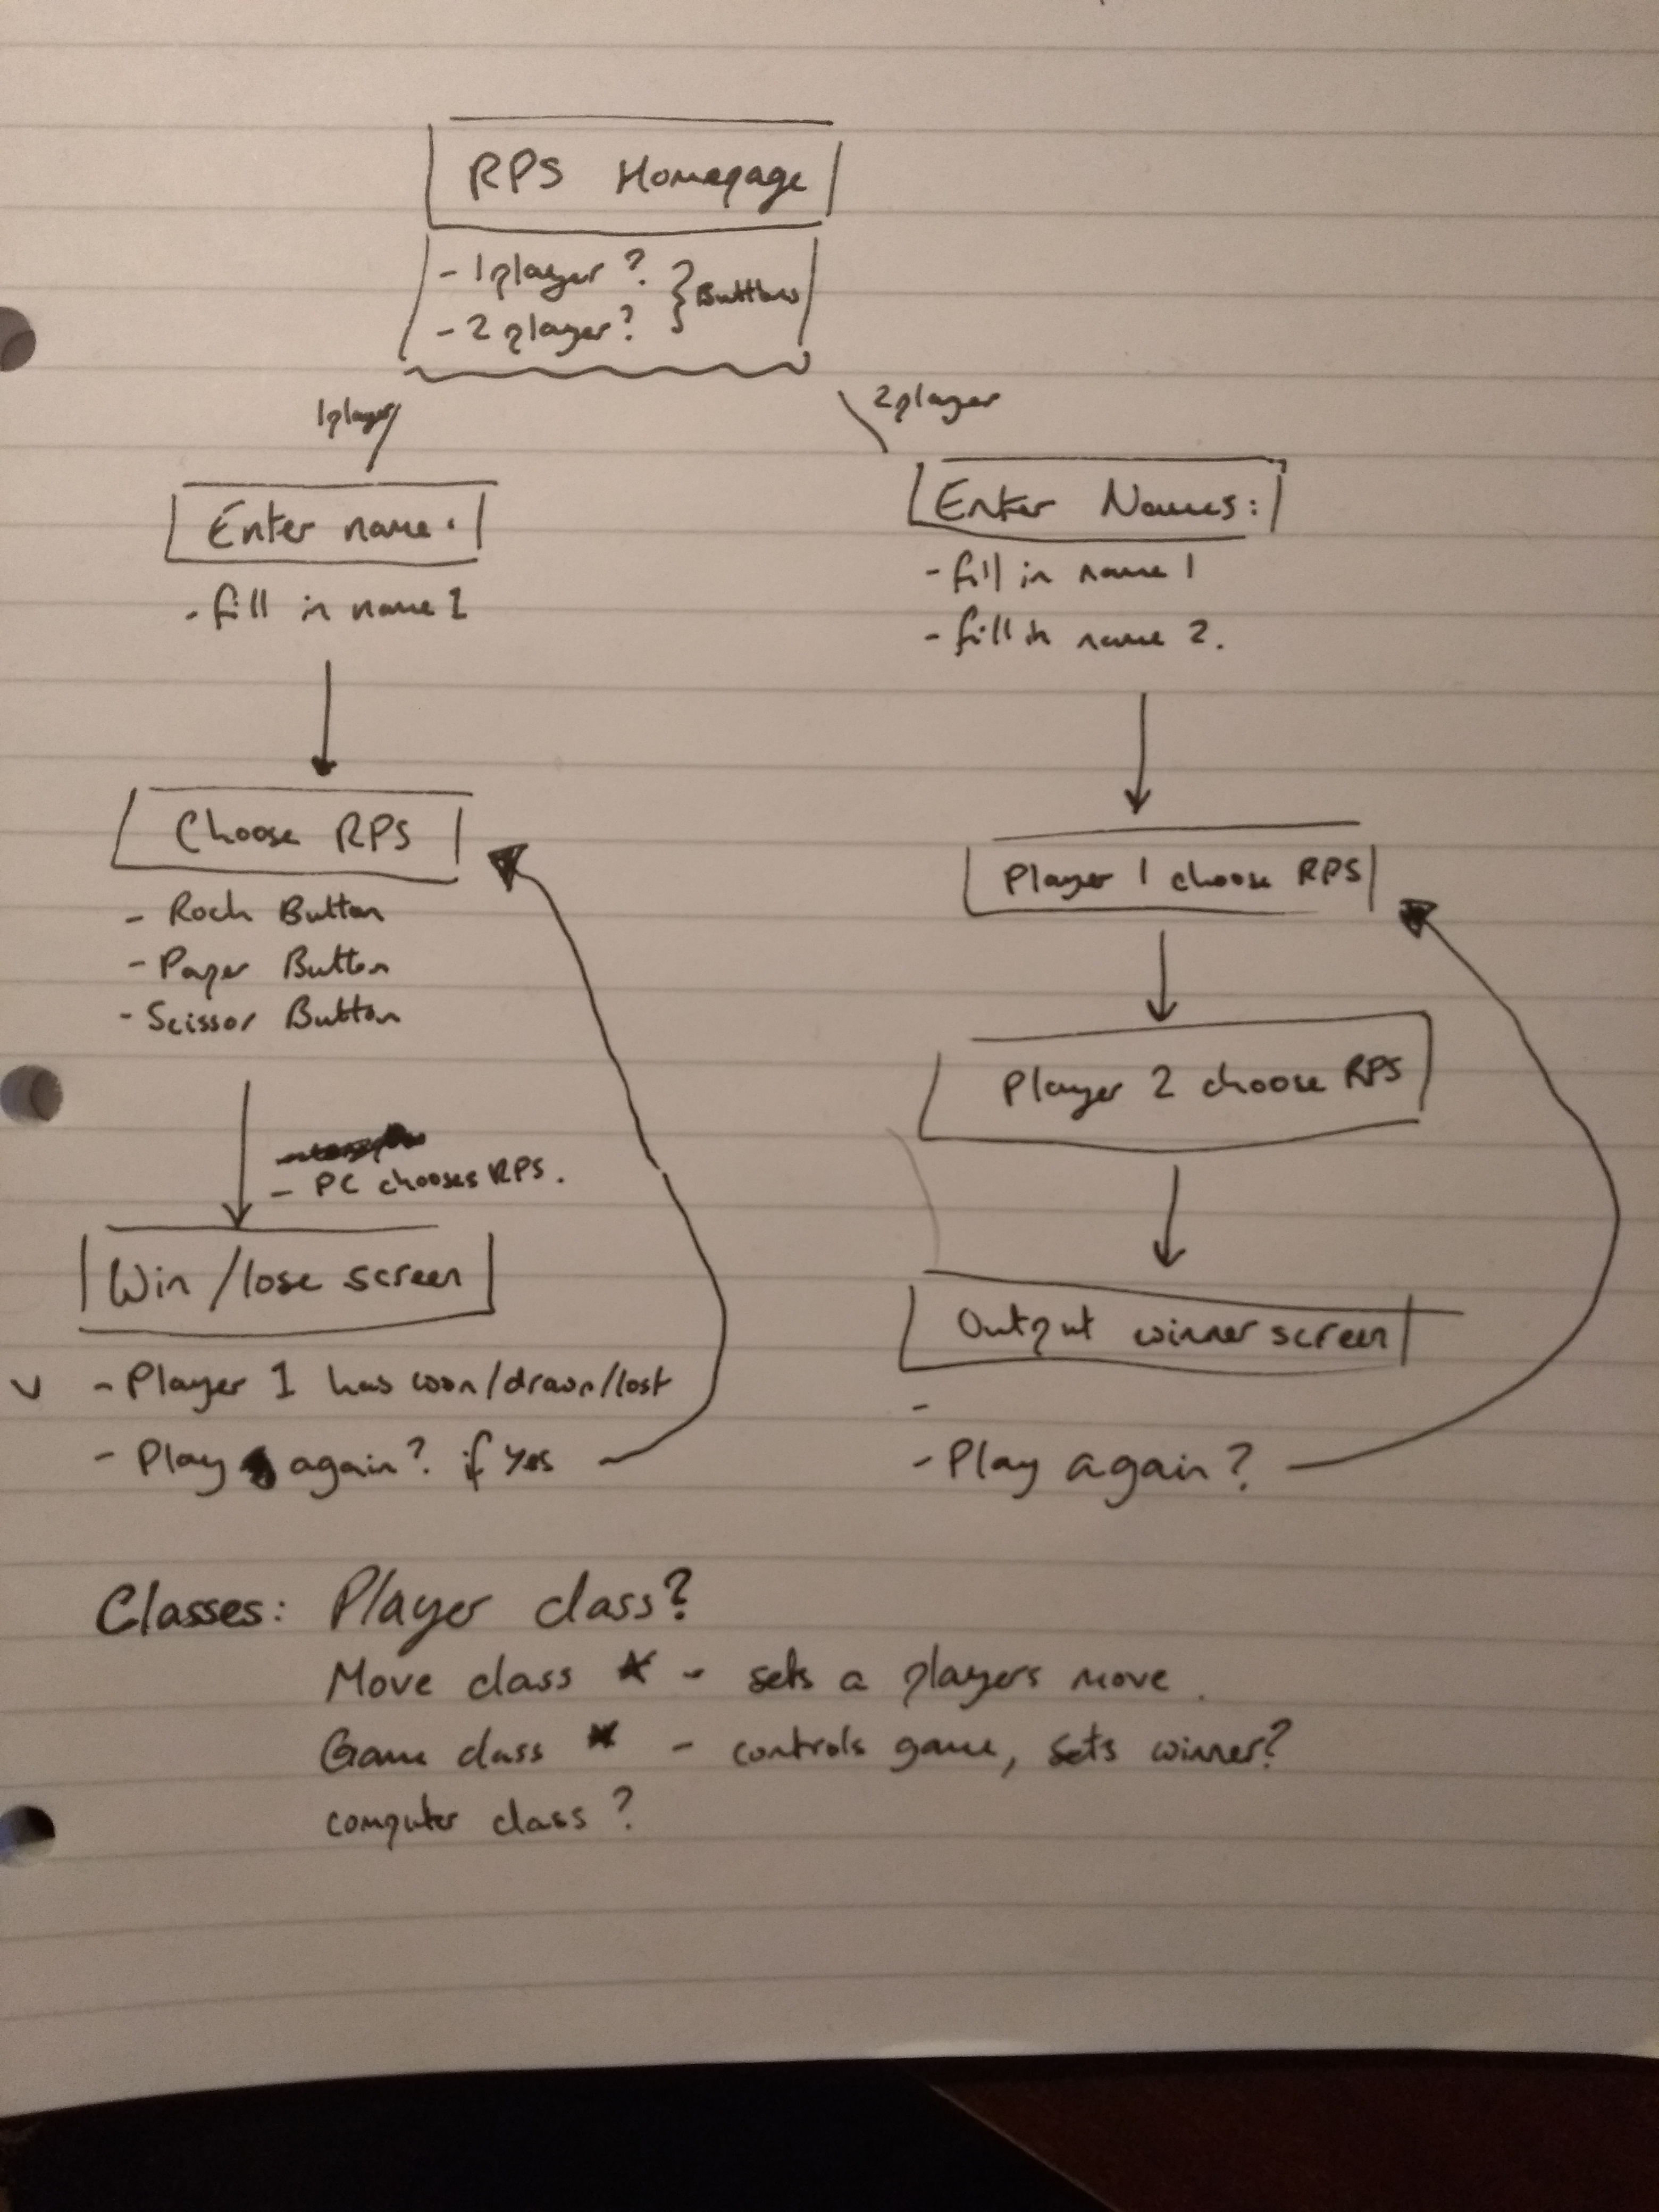 RPS Homepage
- 1 player ?
- 2 player ?
} Buttons
1 player
2 player
Enter name :
- fill in name 1
Choose RPS
- Rock Button
- Paper Button
- Scissor Button
- PC chooses RPS.
Win / lose screen
- Player 1 has won/drawn/lost
- Play again? if yes
Enter Names :
- fill in name 1
- fill in name 2.
Player 1 choose RPS
Player 2 choose RPS
Output winner screen
-
- Play again ?
Classes: Player class?
Move class * - sets a players move .
Game class * - controls game, sets winner?
computer class ?